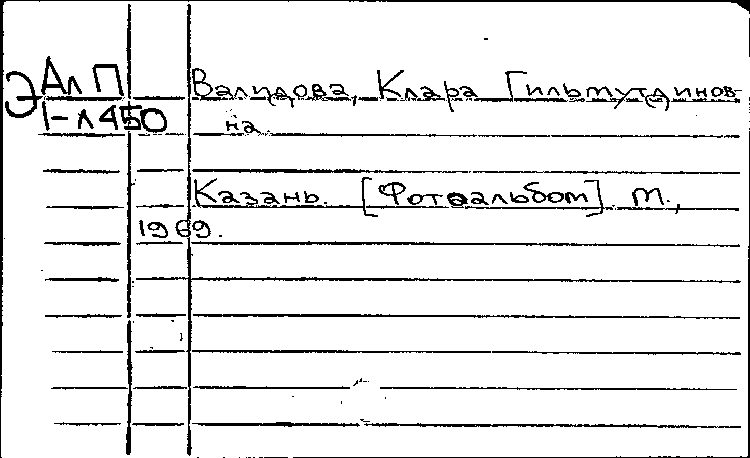 Э Ал П
1-л450
Валидова, Клара Гильмутдинов-
на.
Казань. [Фотоальбом]. М.,
1969.